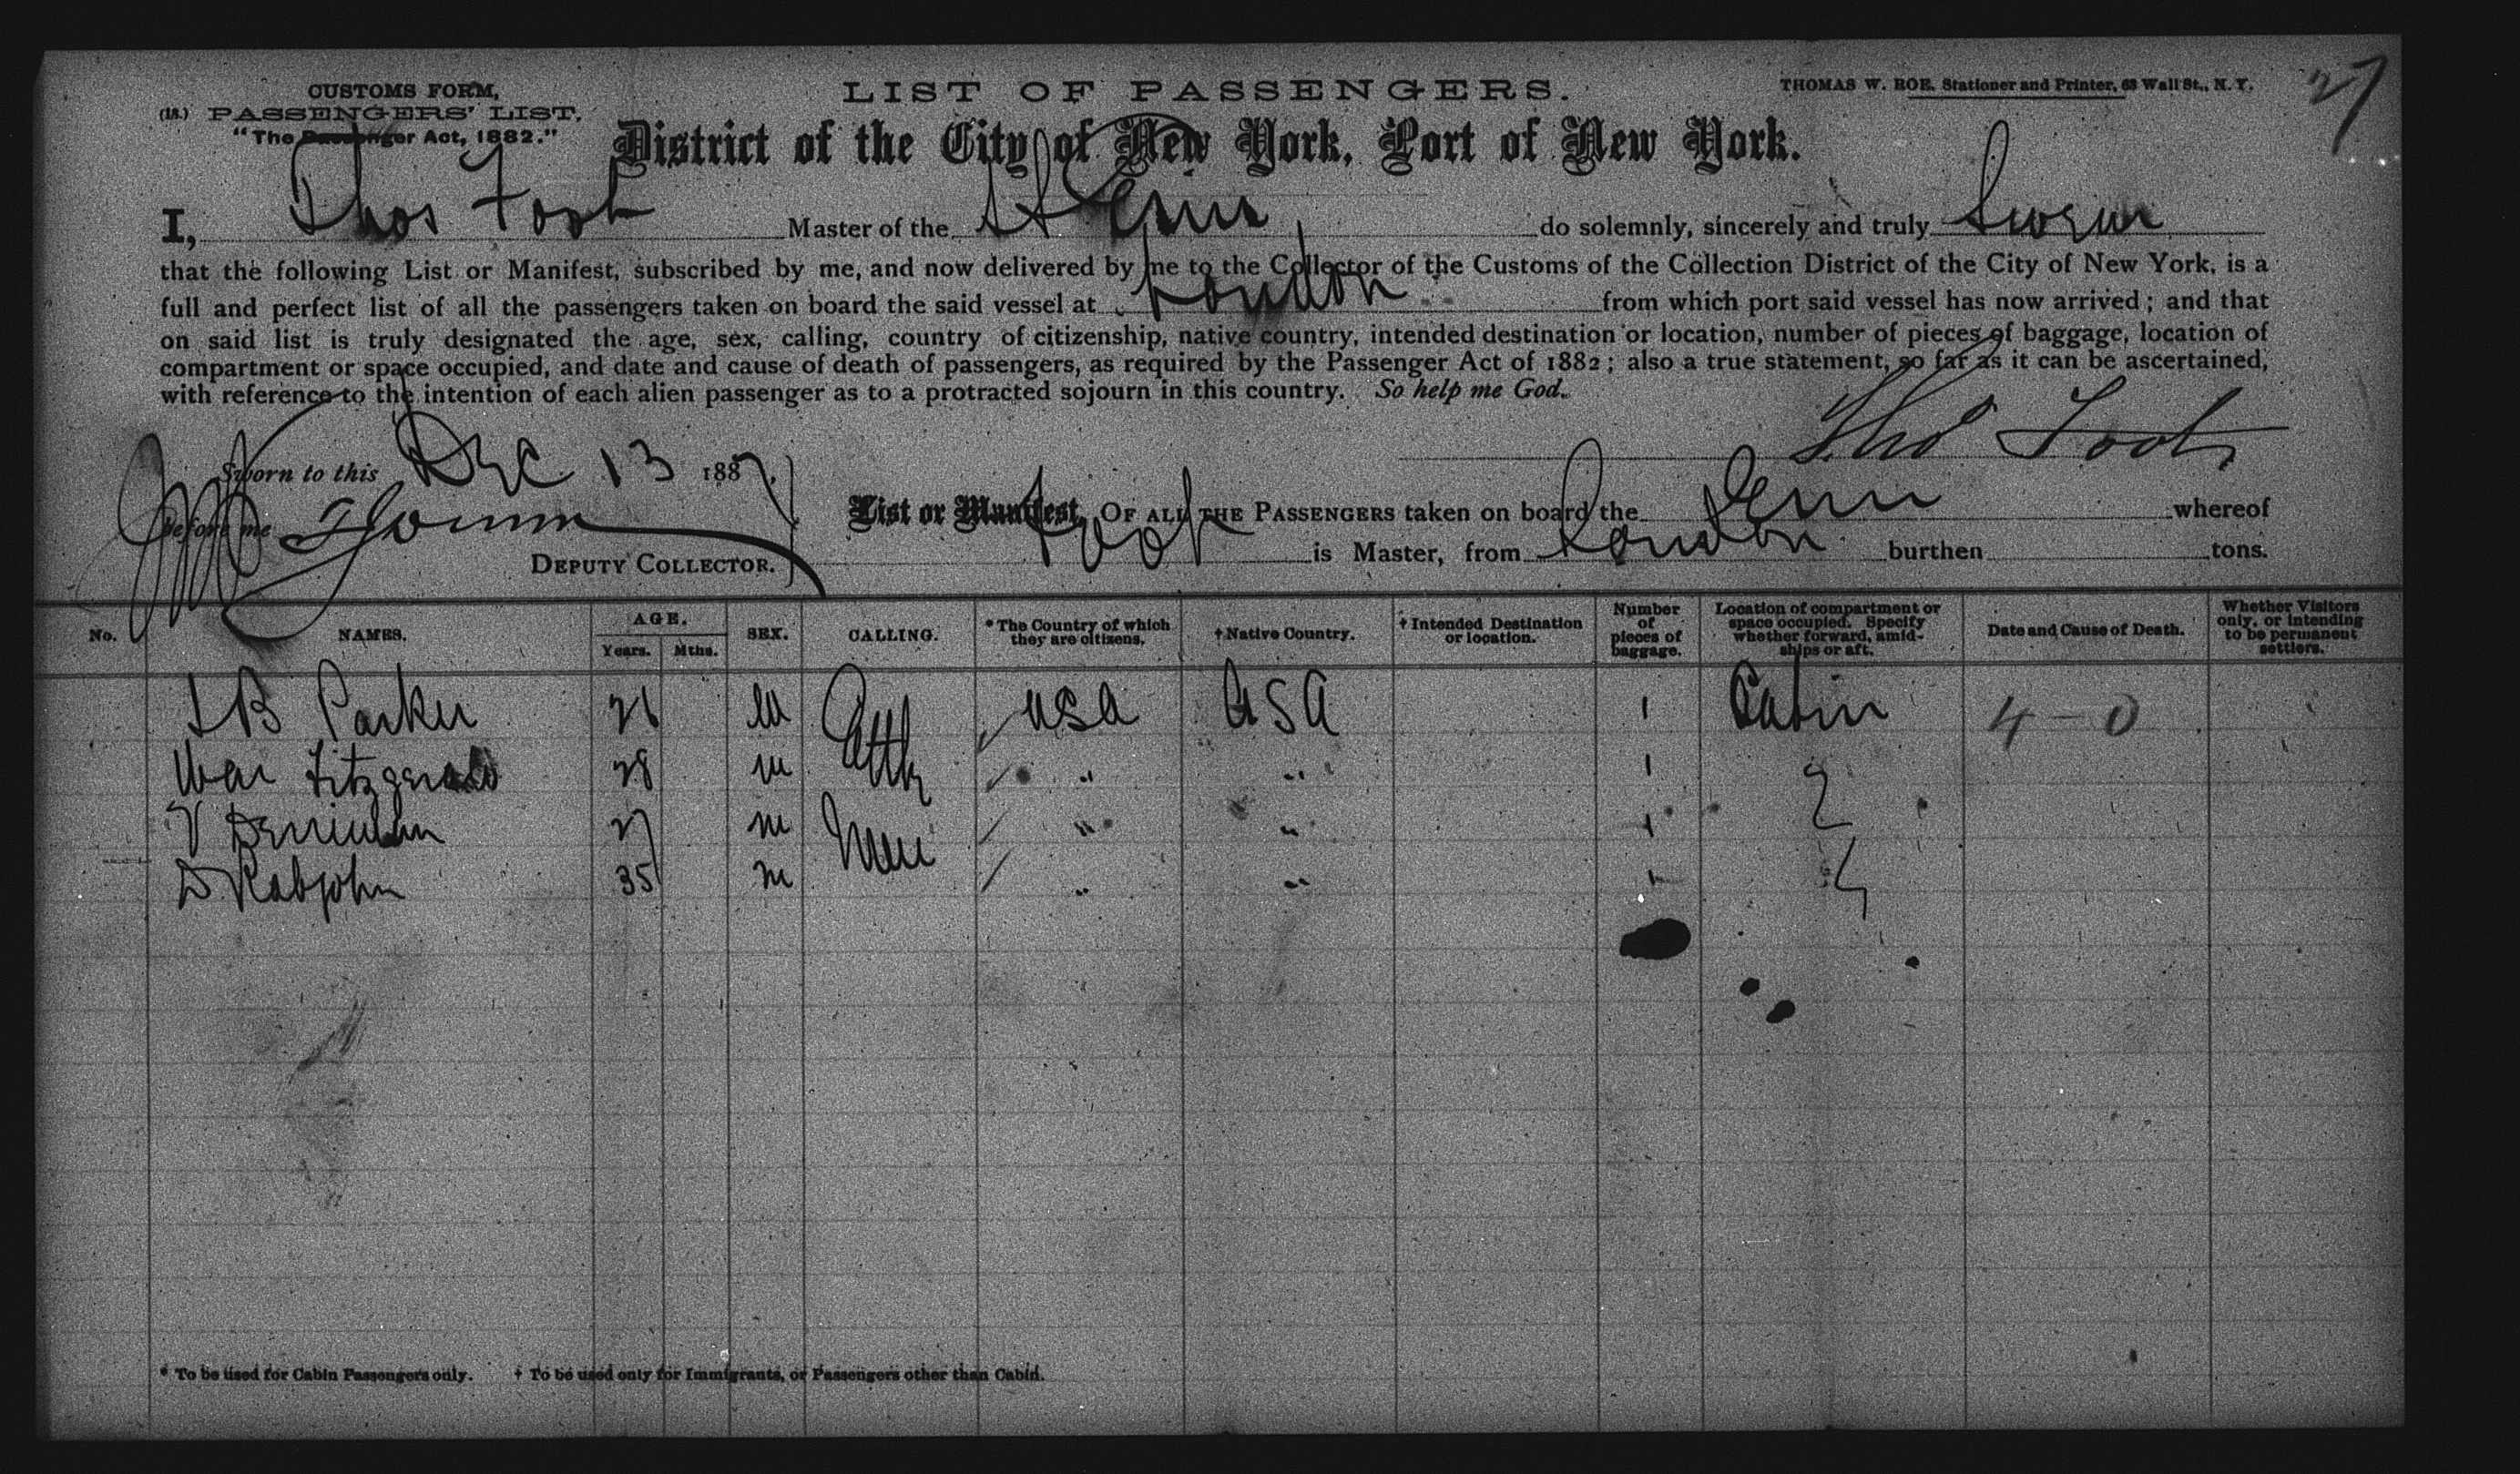 CUSTOMS FORM,
(18.) PASSENGERS' LIST.
"The Passenger Act, 1882."
LIST OF PASSENGERS.
THOMAS W. ROE, Stationer and Printer, 63 Wall St., N. Y.
27
District of the City of New York, Port of New York.
I, Thos Foot Master of the SS do solemnly, sincerely and truly Swear
that the following List or Manifest, subscribed by me, and now delivered by me to the Collector of the Customs of the Collection District of the City of New York, is a
full and perfect list of all the passengers taken on board the said vessel at London from which port said vessel has now arrived; and that
on said list is truly designated the age, sex, calling, country of citizenship, native country, intended destination or location, number of pieces of baggage, location of
compartment or space occupied, and date and cause of death of passengers, as required by the Passenger Act of 1882; also a true statement, so far as it can be ascertained,
with reference to the intention of each alien passenger as to a protracted sojourn in this country. So help me God.
Thos Foot
Sworn to this Dec 13 1887.
before me
DEPUTY COLLECTOR.
List or Manifest, OF ALL THE PASSENGERS taken on board the whereof
Foot is Master, from London burthen tons.
No. NAMES. AGE. Years. Mths. SEX. CALLING. *The Country of which they are citizens. †Native Country. †Intended Destination or location. Number of pieces of baggage. Location of compartment or space occupied. Specify whether forward, amidships or aft. Date and Cause of Death. Whether Visitors only, or intending to be permanent settlers.
Parker 26 m USA USA 1 Cabin 4-0
Fitzgerald 28 m " " 1
27 m Men " " 1
D Rabjohn 35 m " " 1
* To be used for Cabin Passengers only. † To be used only for Immigrants, or Passengers other than Cabin.